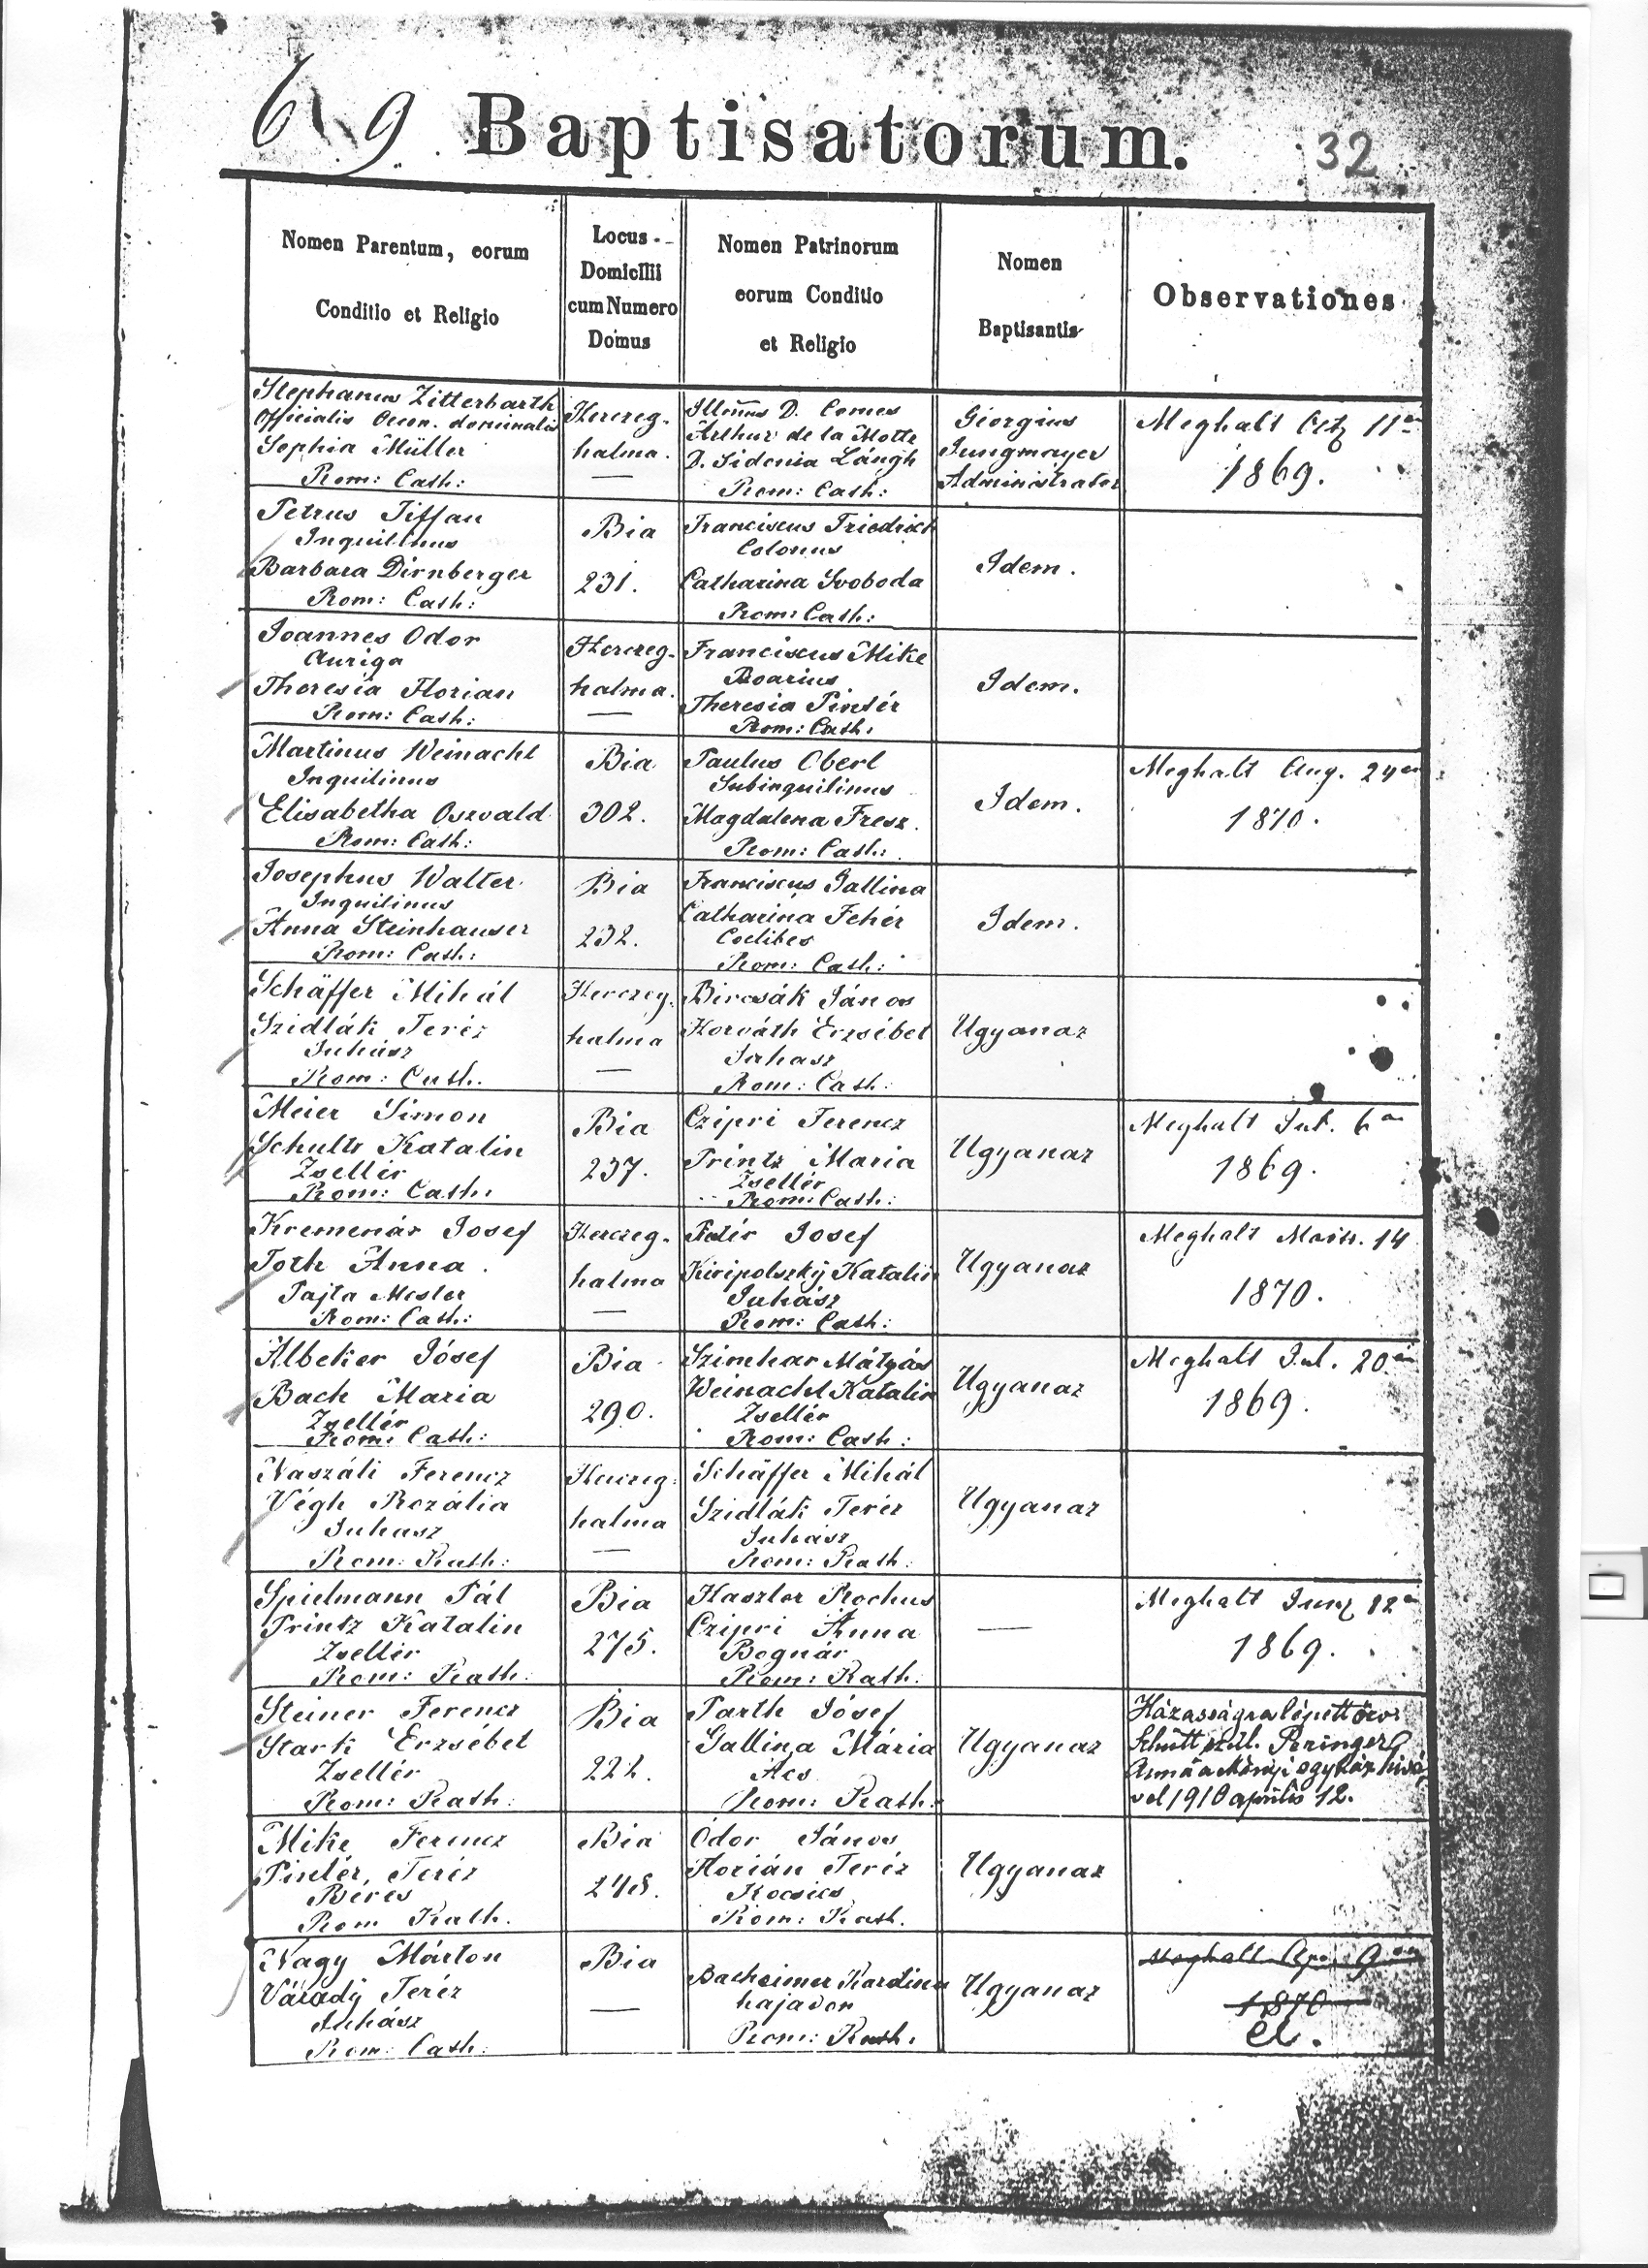 69. Baptisatorum. 32
Nomen Parentum, eorum
Conditio et Religio
Locus
Domicilii
cum Numero
Domus
Nomen Patrinorum
eorum Conditio
et Religio
Nomen
Baptisantis
Observationes
Stephanus Zitterbarth
Officialis Oecon. dominalis
Sophia Müller
Rom: Cath:
Herczeg-
halma.
D. Comes
Arthur de la Motte
D. Sidonia Lángh
Rom: Cath:
Georgius
Jungmayer
Administrator
Meghalt Octb 11én
1869.
Petrus Tiffau
Inquilinus
Barbara Dirnberger
Rom: Cath:
Bia
231.
Franciscus Friedrich
Colonus
Catharina Svoboda
Rom: Cath:
Idem.
Joannes Odor
Auriga
Theresia Florian
Rom: Cath:
Herczeg-
halma.
Franciscus Mike
Boarius
Theresia Pintér
Rom: Cath:
Idem.
Martinus Weinachl
Inquilinus
Elisabetha Oszvald
Rom: Cath:
Bia
302.
Paulus Oberl
Subinquilinus
Magdalena Fresz.
Rom: Cath:
Idem.
Meghalt Aug. 24én
1870.
Josephus Walter
Inquilinus
Anna Steinhauser
Rom: Cath:
Bia
232.
Franciscus Gallina
Catharina Fehér
Coelibes
Rom: Cath:
Idem.
Schäffer Mihál
Szidlák Teréz
Juhász
Rom: Cath.
Herczeg-
halma
Bircsák János
Horváth Erzsébet
Juhasz
Rom: Cath:
Ugyanaz
Meier Simon
Schultz Katalin
Zsellér
Rom: Cath:
Bia
237.
Czipri Ferencz
Printz Maria
Zsellér
Rom: Cath:
Ugyanaz
Meghalt Jul. 6án
1869.
Kremenár Josef
Toth Anna.
Pajta Mester
Rom: Cath:
Herczeg-
halma
Petér Josef
Kiripolszky Katalin
Juhász
Rom: Cath:
Ugyanaz
Meghalt 14
1870.
Albeker Jósef
Bach Maria
Zsellér
Rom: Cath:
Bia
290.
Szimhar Mátyás
Weinachl Katalin
Zsellér
Rom: Cath:
Ugyanaz
Meghalt Jul. 20án
1869.
Naszáli Ferencz
Végh Rozália
Juhasz
Rom: Kath:
Herczeg-
halma
Schäffer Mihál
Szidlák Teréz
Juhász
Rom: Kath:
Ugyanaz
Spielmann Pál
Printz Katalin
Zsellér
Rom: Kath:
Bia
275.
Haszler Rochus
Czipri Anna
Bognár
Rom: Kath:
Meghalt Junz 12én
1869.
Steiner Ferencz
Stark Erzsébet
Zsellér
Rom: Kath:
Bia
222.
Parth Jósef
Gallina Mária
Acs
Rom: Kath:
Ugyanaz
Házasságra lépett özv:
Schütt szül. Reninger
Anna a Mányi egyház
vel 1910 április 12.
Mike Ferencz
Pintér, Teréz
Béres
Rom Kath.
Bia
248.
Odor János
Florián Teréz
Kocsics
Rom: Kath.
Ugyanaz
Nagy Márton
Várady Teréz
Juhász
Rom: Cath:
Bia
Bacheimer Karolina
hajadon
Rom: Kath:
Ugyanaz
Meghalt Apr. 9én
1870
él.